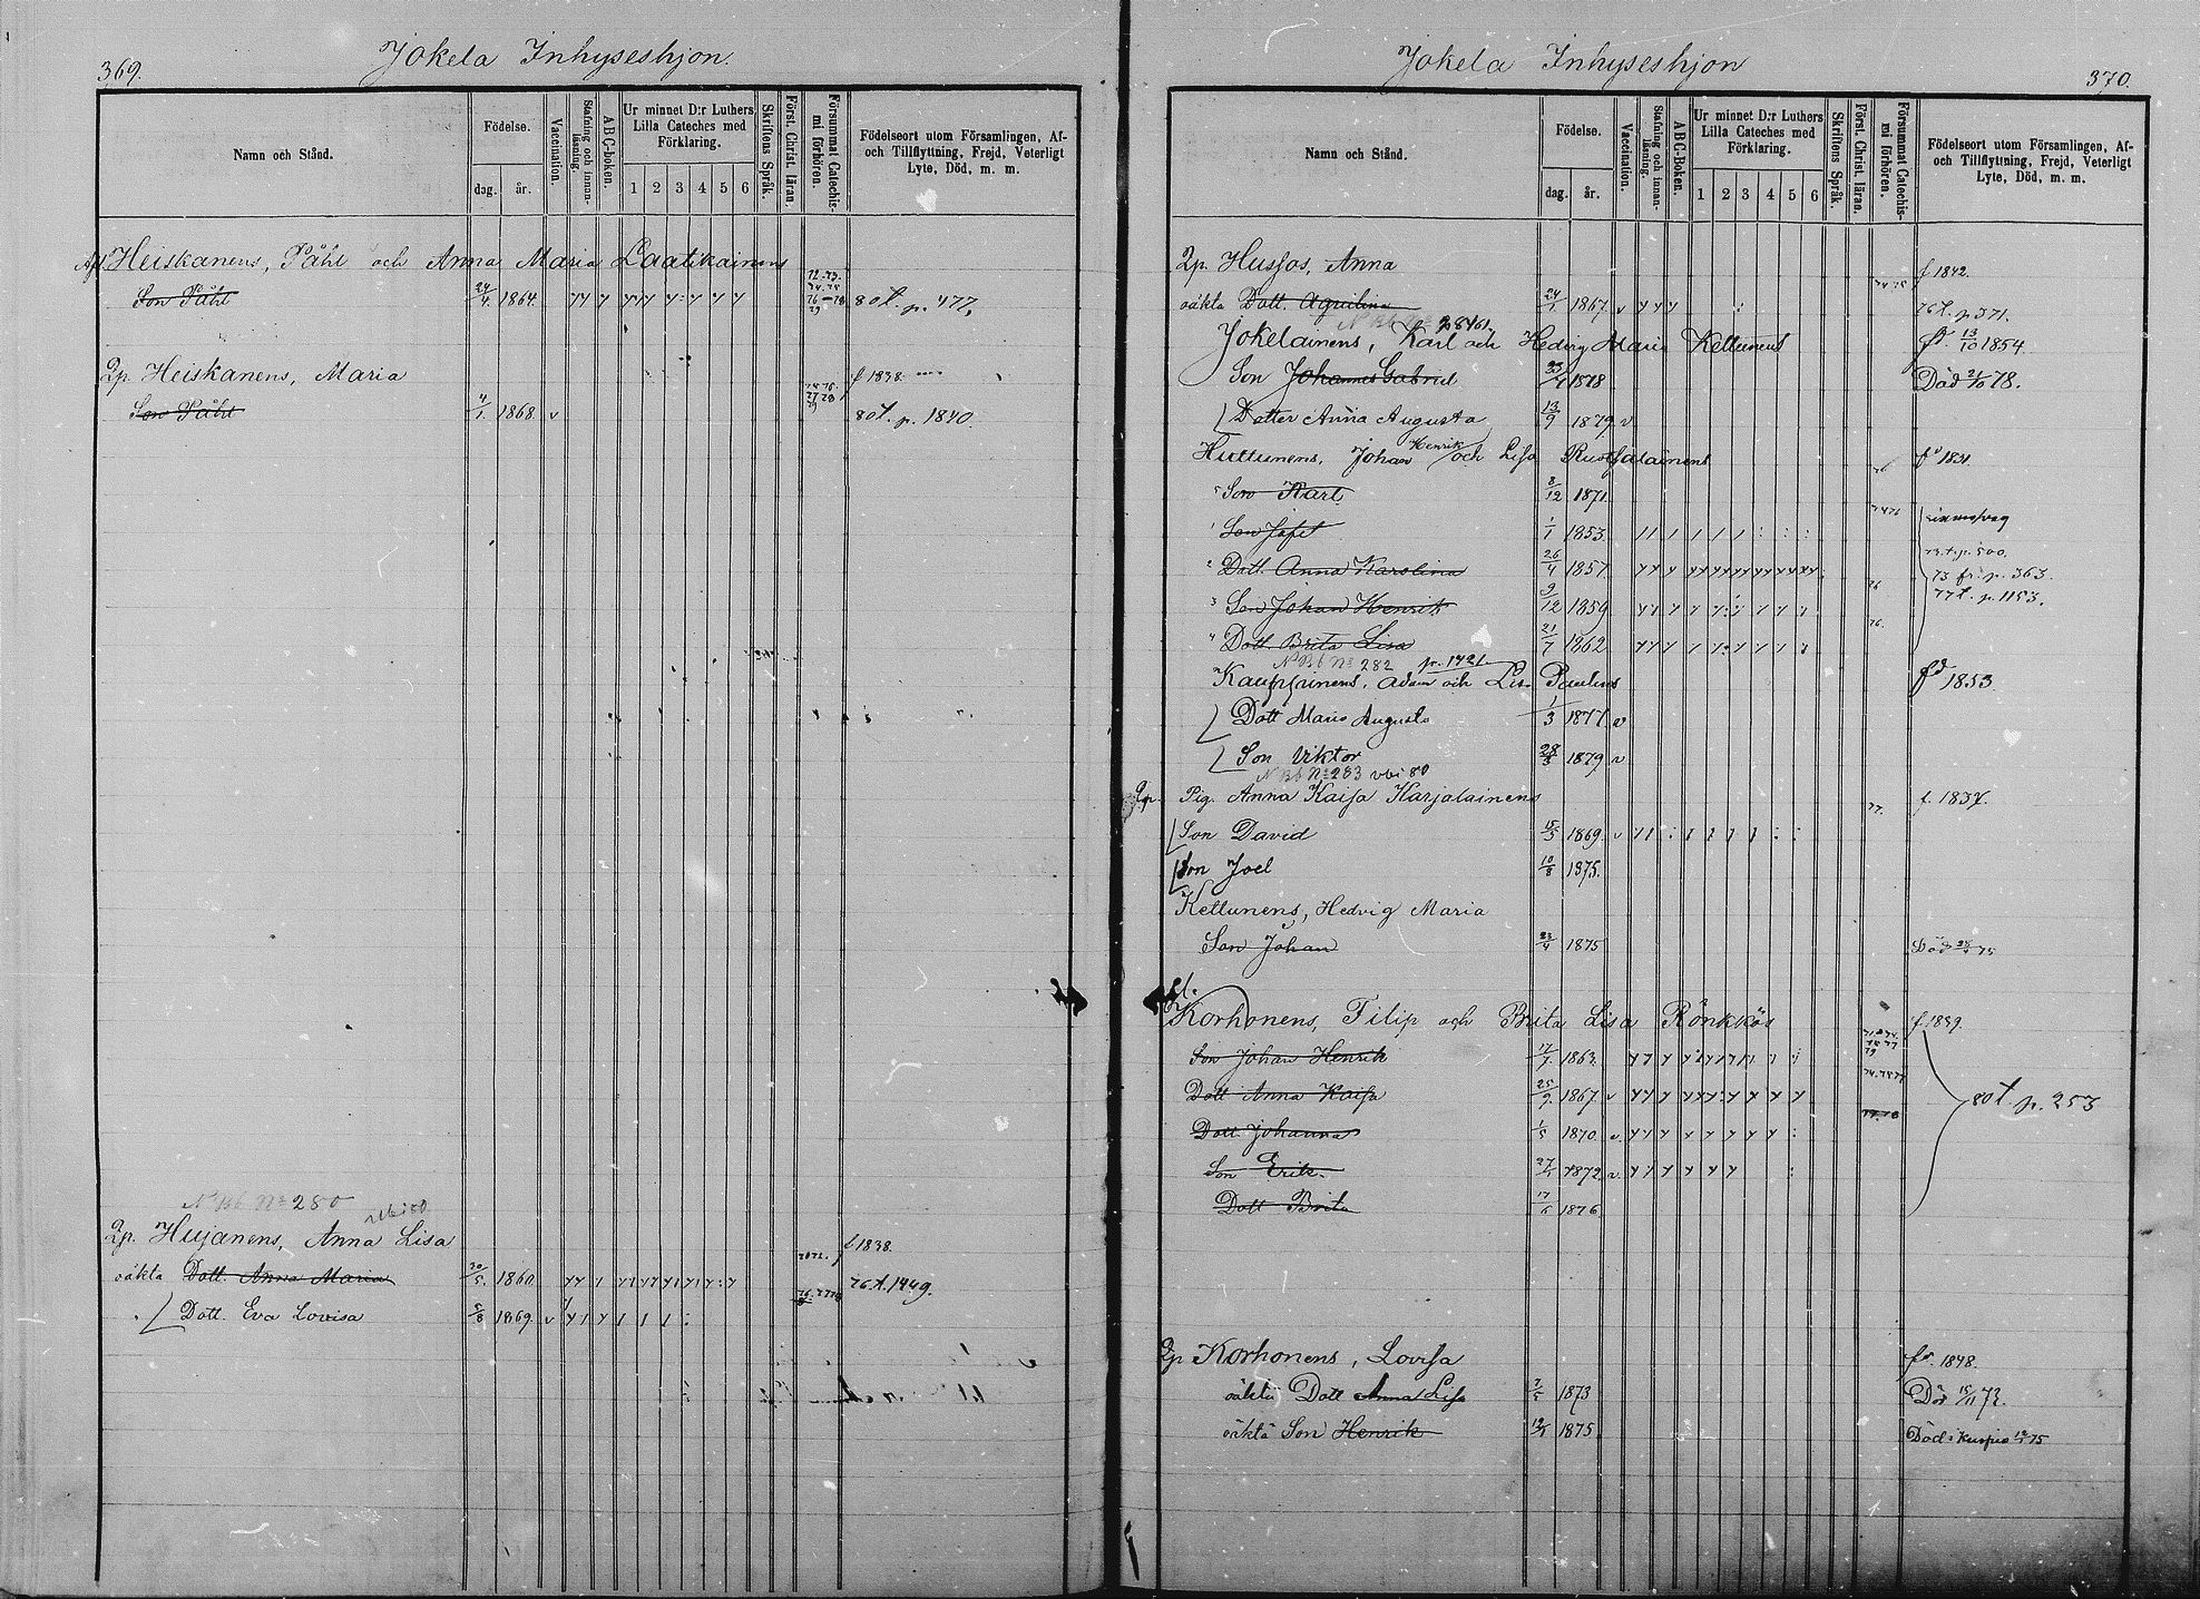 369.
Jokela Inhyseshjon.
Namn och Stånd.
Födelse.
dag.
år.
Vaccination.
Stafning och innanläsning.
ABC-boken.
Ur minnet D:r Luthers Lilla Cateches med Förklaring.
1 2 3 4 5 6
Skriftens Språk.
Först. Christ. läran.
Försummat Catechismi förhören.
Födelseort utom Församlingen, Af- och Tillflyttning, Frejd, Veterligt Lyte, Död, m. m.
Heiskanens, Påhl och Anna Maria Laatikainens
Son Påhl 24/4 1864 80 t. p. 477.
Qp. Heiskanens, Maria f 1838
Son Påhl 4/1 1868 v 80 t. p. 1840.
N Bb No 280
Qp. Hujanens, Anna Lisa f 1838.
oäkta Dott. Anna Maria 30/5 1860 76 t. 1449.
Dott. Eva Lovisa 5/8 1869 v
370.
Jokela Inhyseshjon
Namn och Stånd.
Födelse.
dag.
år.
Vaccination.
Stafning och innanläsning.
ABC-Boken.
Ur minnet D:r Luthers Lilla Cateches med Förklaring.
1 2 3 4 5 6
Skriftens Språk.
Först. Christ. läran.
Försummat Catechismi förhören.
Födelseort utom Församlingen, Af- och Tillflyttning, Frejd, Veterligt Lyte, Död, m. m.
Qp. Hussos, Anna f 1842.
oäkta Dott. Aqvilina 24/1 1867 v 76 t. p 371.
Jokelainens, Karl och Hedvig Maria Kettunens 13/10 1854
Son Johannes Gabriel 1878 Död 21/10 78.
Dotter Anna Augusta 13/9 1879 v
Huttunens, Johan Henrik och Lisa 1831
Son Karl 8/12 1871
Son Jafet 1/1 1853
73 t. p. 500.
Dott. Anna Karolina 26/4 1857 73 fr. p. 363.
Son Johan Henrik 9/12 1859 77 t. p. 1153.
Dott. Brita Lisa 21/7 1862
N Bb No 282 p. 1421
Kauppinens, Adam och Lisa Paulins 1853
Dott Maria Augusta 1/3 1877 v
Son Viktor 1879 v
N Bb No 283
Qp. Pig. Anna Kaisa Karjalainens f. 1837.
Son David 1869 v
Son Joel 10/8 1875.
Kettunens, Hedvig Maria
Son Johan 23/4 1875 Död 75
Korhonens, Filip och Brita Lisa Rönkkös f. 1839.
Son Johan Henrik 17/7 1863
Dott Anna Kaisa 25/9 1867 v 80 t p. 253
Dott Johanna 1/5 1870 v
Son Erik 1872 v
Dott Brita 1876
Qp Korhonens, Lovisa 1848.
oäkta Dott Anna Lisa 1873 Död 15/11 73.
oäkta Son Henrik 1875 Död i Kuopio 75